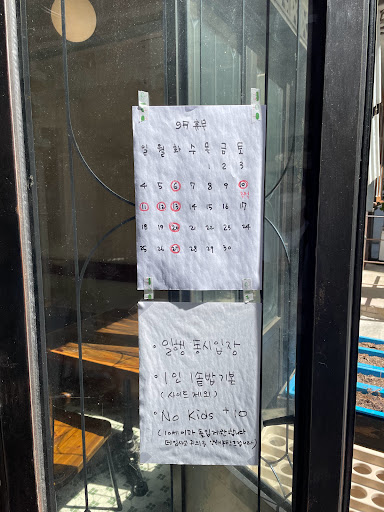 9月 휴무
일 월 화 수 목 금 토
2 3
4 5 6 7 8 9 10
11 12 13 14 15 16 17
18 19 20 21 22 23 24
25 26 27 28 29 30
• 일행 동시입장
• 1인 1솥밥 기본
(사이드 제외)
• No Kids +10